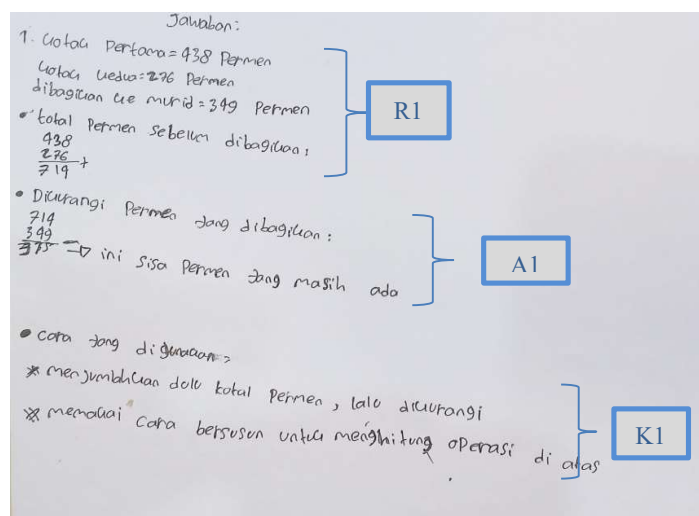 Jawaban:
1. kotak Pertama = 438 Permen
kotak kedua = 276 Permen
dibagikan ke murid = 349 Permen
• total Permen sebelum dibagikan:
438
276 +
714
R1
• Dikurangi Permen yang dibagikan:
714
349 -
375 → ini sisa Permen yang masih ada
A1
• Cara yang digunakan:
* menjumblhkan dolu total Permen, lalu dikurangi
* memakai cara bersusun untuk menghitung operasi di atas
K1